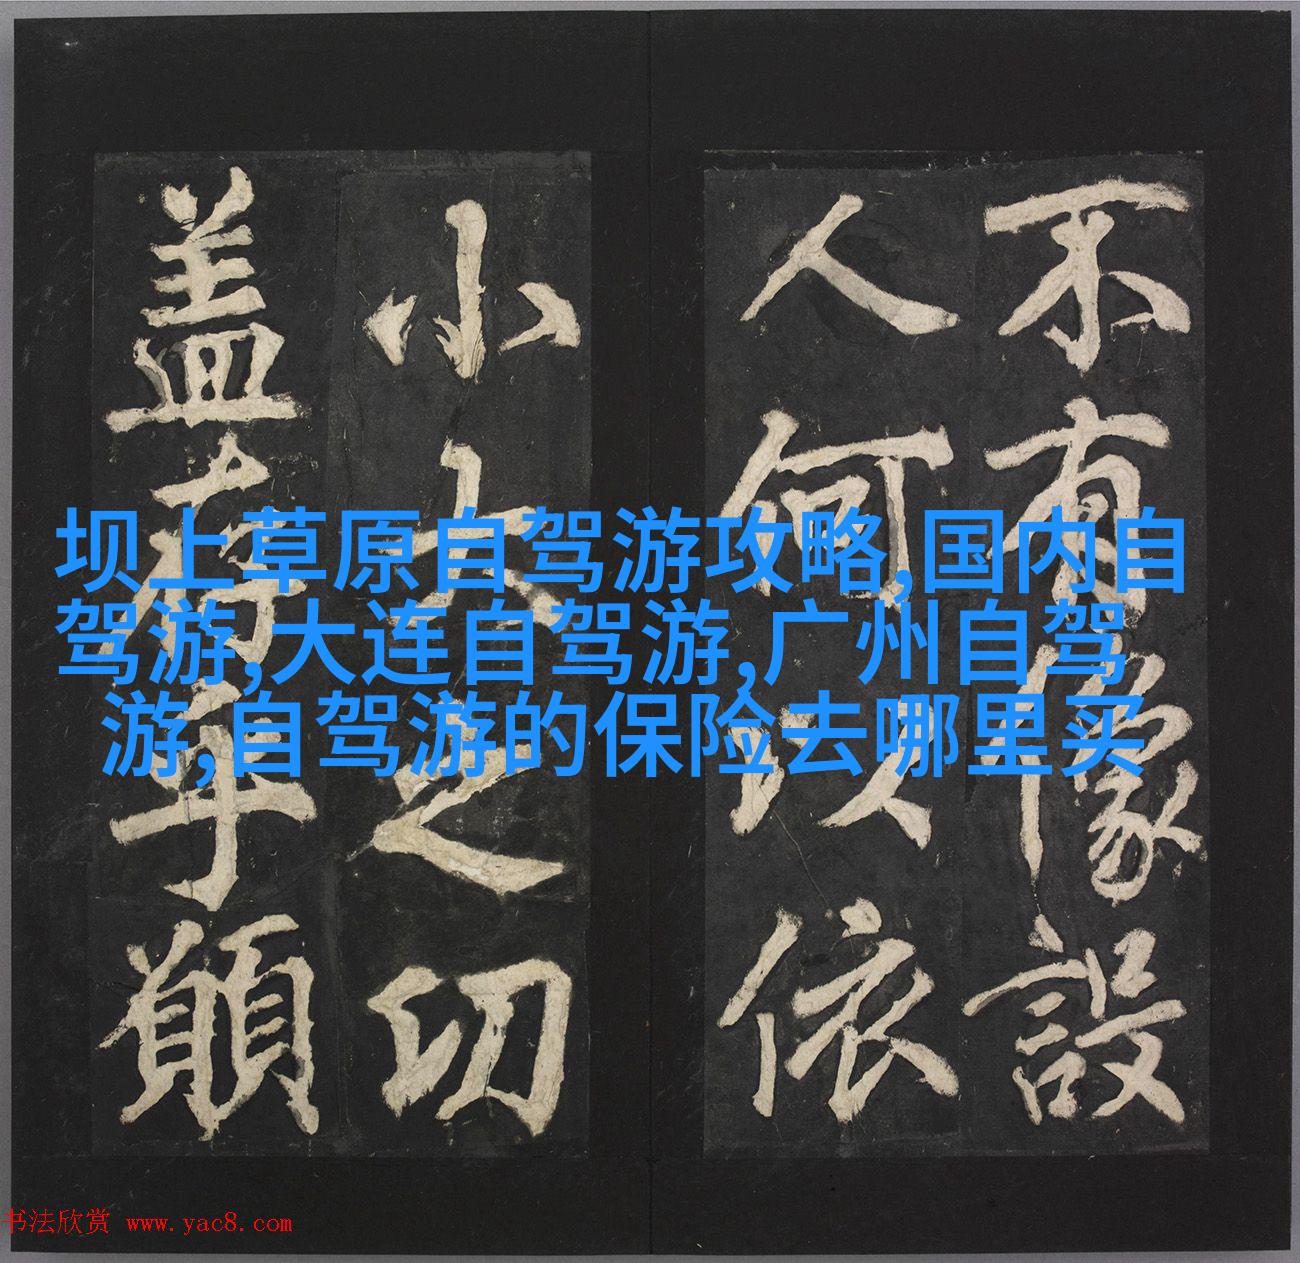 坝上草原自驾游攻略,国内自
驾游,大连自驾游,广州自驾
游,自驾游的保险去哪里买
不有像設
人何以依
小大之切
盖存乎願
书法欣赏 www.yac8.com